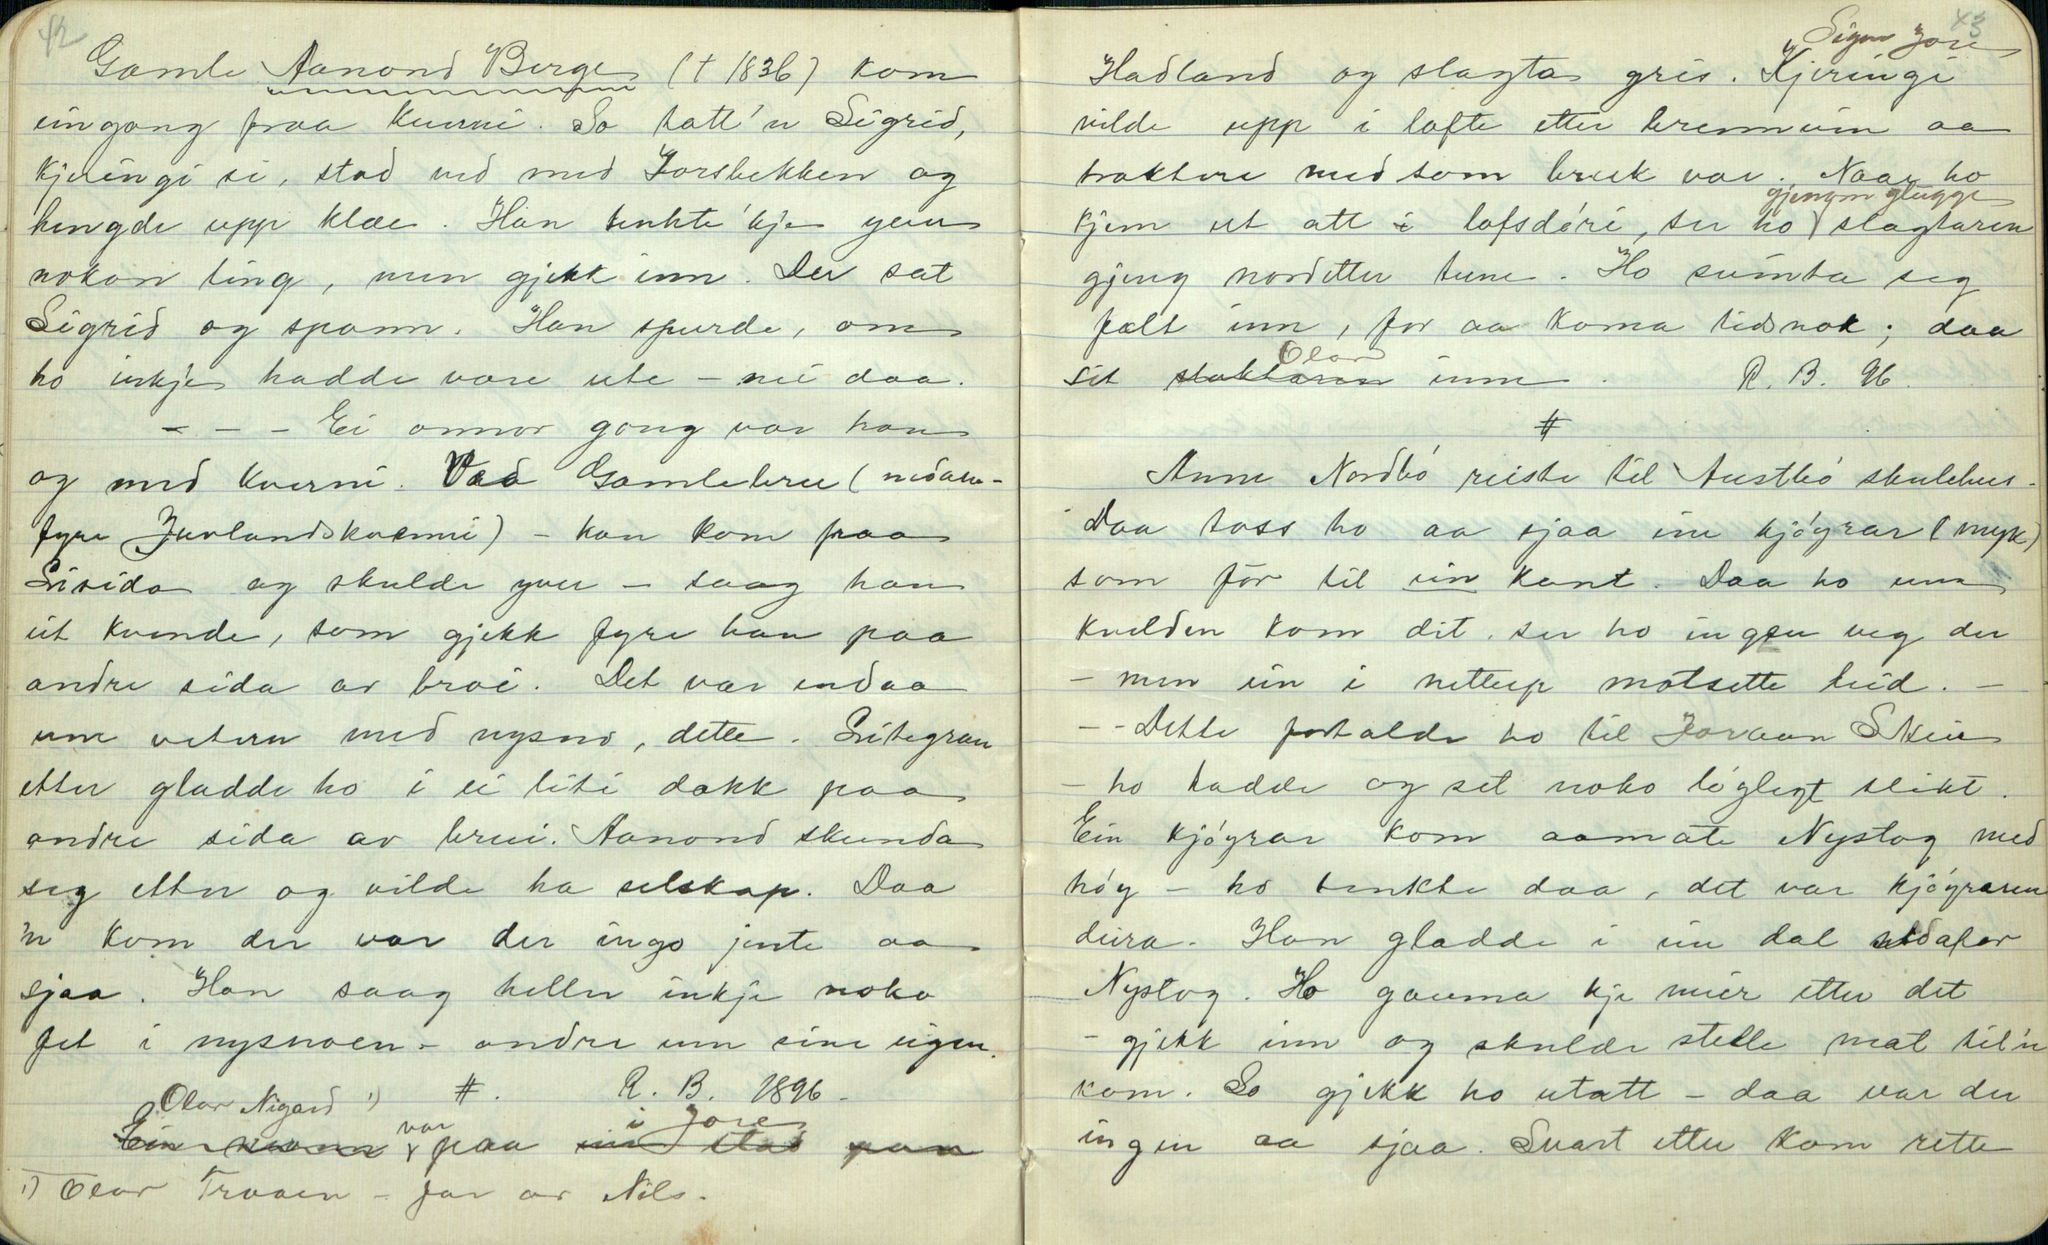 42
Gamle Aanond Berge († 1836) kom
eingong fraa kverni. So totte'n Sigrid,
kjeringi si, stod ned med Jorsbekken og
hengde upp klæe. Han tenkte 'kje yver
nokon ting, men gjekk inn. Der sat
Sigrid og spann. Han spurde, om
ho inkje hadde vore ute – nei daa.
– – – Ei onnor gong var han
og med kverni. Ved Gamlebrui (nedan-
fyre Juvlandskverni) – han kom fraa
Lisida og skulde yver – saag han
eit kvende, som gjekk fyre han paa
andre sida av broi. Det var endaa
um vetern med nysno, dette. Litegran
etter gladde ho i ei liti dokk paa
andre sida av brui. Aanond skunda
seg etter og vilde ha selskap. Daa
'n kom der var der ingo jente aa
sjaa. Han saag heller inkje noko
fet i nysnoen – andre enn sine eigne.
#. R. B. 1896 –
Olav Nigard 1) var i Jore
Ein mann paa ein stad paa
1) Olav Traaen – far av Nils.
43
Signe Jore
Hadland og slagta gris. Kjeringi
vilde upp i lofte etter brennvin aa
traktere med som bruk var. Naar ho
gjenom glugge
kjem ut att i loftsdóri, ser ho slagtaren
gjeng nordetter tune. Ho svinta seg
fælt inn, for aa koma tidsnok; daa
Olav
sit slaktaren inne. R. B. 96.
#
Anne Nordbó reiste til Austbó skulehus.
Daa toss ho aa sjaa ein kjógrar (myk)
som fór til ein kant. Daa ho um
kvelden kom dit, ser ho ingen veg der
– men ein i nettup motsette leid. –
– – Dette fortalde ho til Joraan Skeie
– ho hadde og set noko lógleg slikt.
Ein kjógrar kom aamote Nystog med
hóy – ho tenkte daa, det var kjógraren
deira. Han gladde i ein dal nedafor
Nystog. Ho gauma kje meir etter det
– gjekk inn og skulde stelle mat til'n
kom. So gjekk ho ut att – daa var der
ingen aa sjaa. Snart etter kom rette